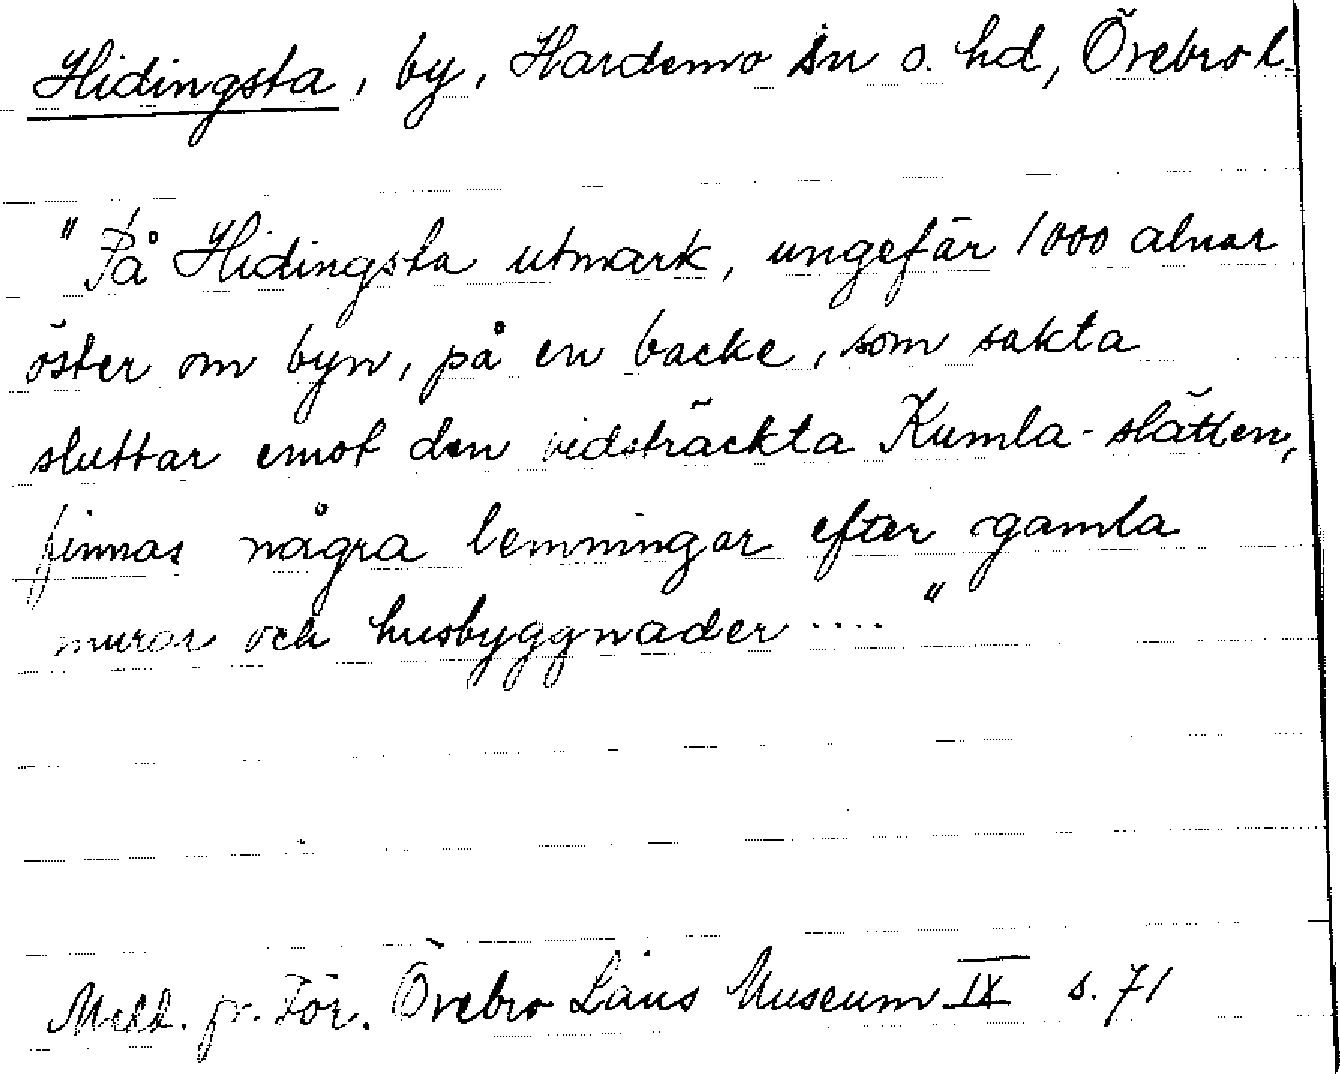 Hidingsta, by, Hardemo sn o. hd, Örebro l.
"På Hidingsta utmark, ungefär 1000 alnar
öster om byn, på en backe, som sakta
sluttar emot den vidsträckta Kumla-slätten,
finnas några lemningar efter gamla
murar och husbyggnader ...."
Medd. fr. För. Örebro Läns Museum IX s. 71